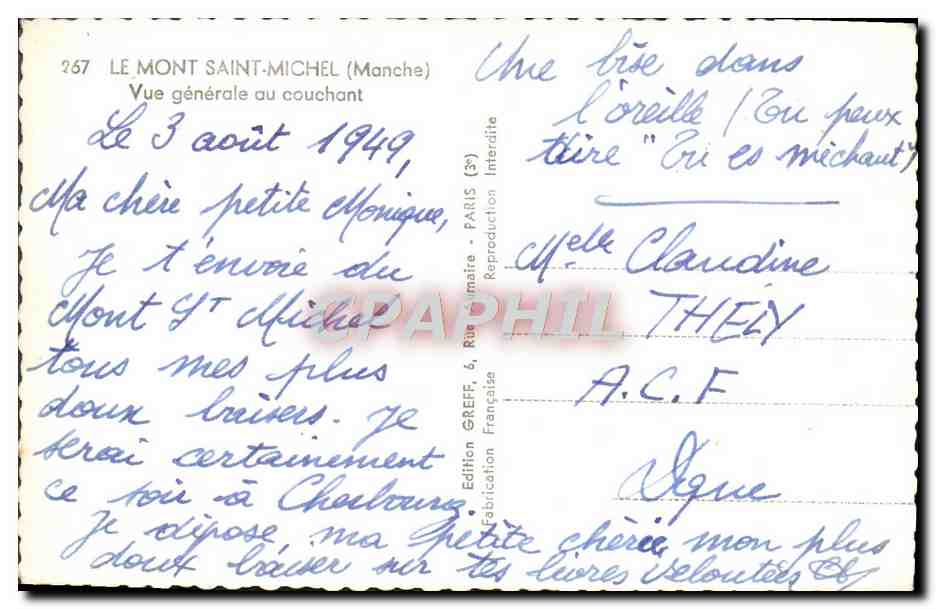 267 LE MONT SAINT-MICHEL (Manche)
Vue générale au couchant
Le 3 août 1949,
Ma chère petite Monique,
Je t'envoie du
Mont St Michel
tous mes plus
doux baisers. Je
serai certainement
ce soir à Cherbourg.
Je dépose, ma petite chérie, mon plus
doux baiser sur tes livres veloutées
Une bise dans
l'oreille (Tu peux
dire "Tu es méchant")
Melle Claudine
THELY
A.C.F
Digne
Edition GREFF, 6, Rue - PARIS (3e)
Fabrication Française Reproduction Interdite
CPAPHIL